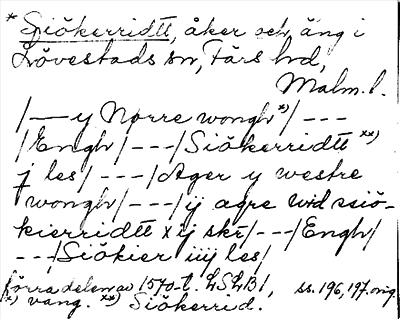 * Siökerridtt, åker och äng i
Lövestads sn, Färs hd,
Malm. l.
/— y Norre wongh *)/ ---
/Engh/ ---/Siökerridtt **)
j les/ ---/Ager y westre
wongh/ ---/ij agre wid ssiö-
kierridtt x ij skr/ ---/Engh/
---/Siökier iiij les/
förra delen av 1570-t. LSLB1, ss. 196, 197. orig.
*) vang. **) Siökerrid.